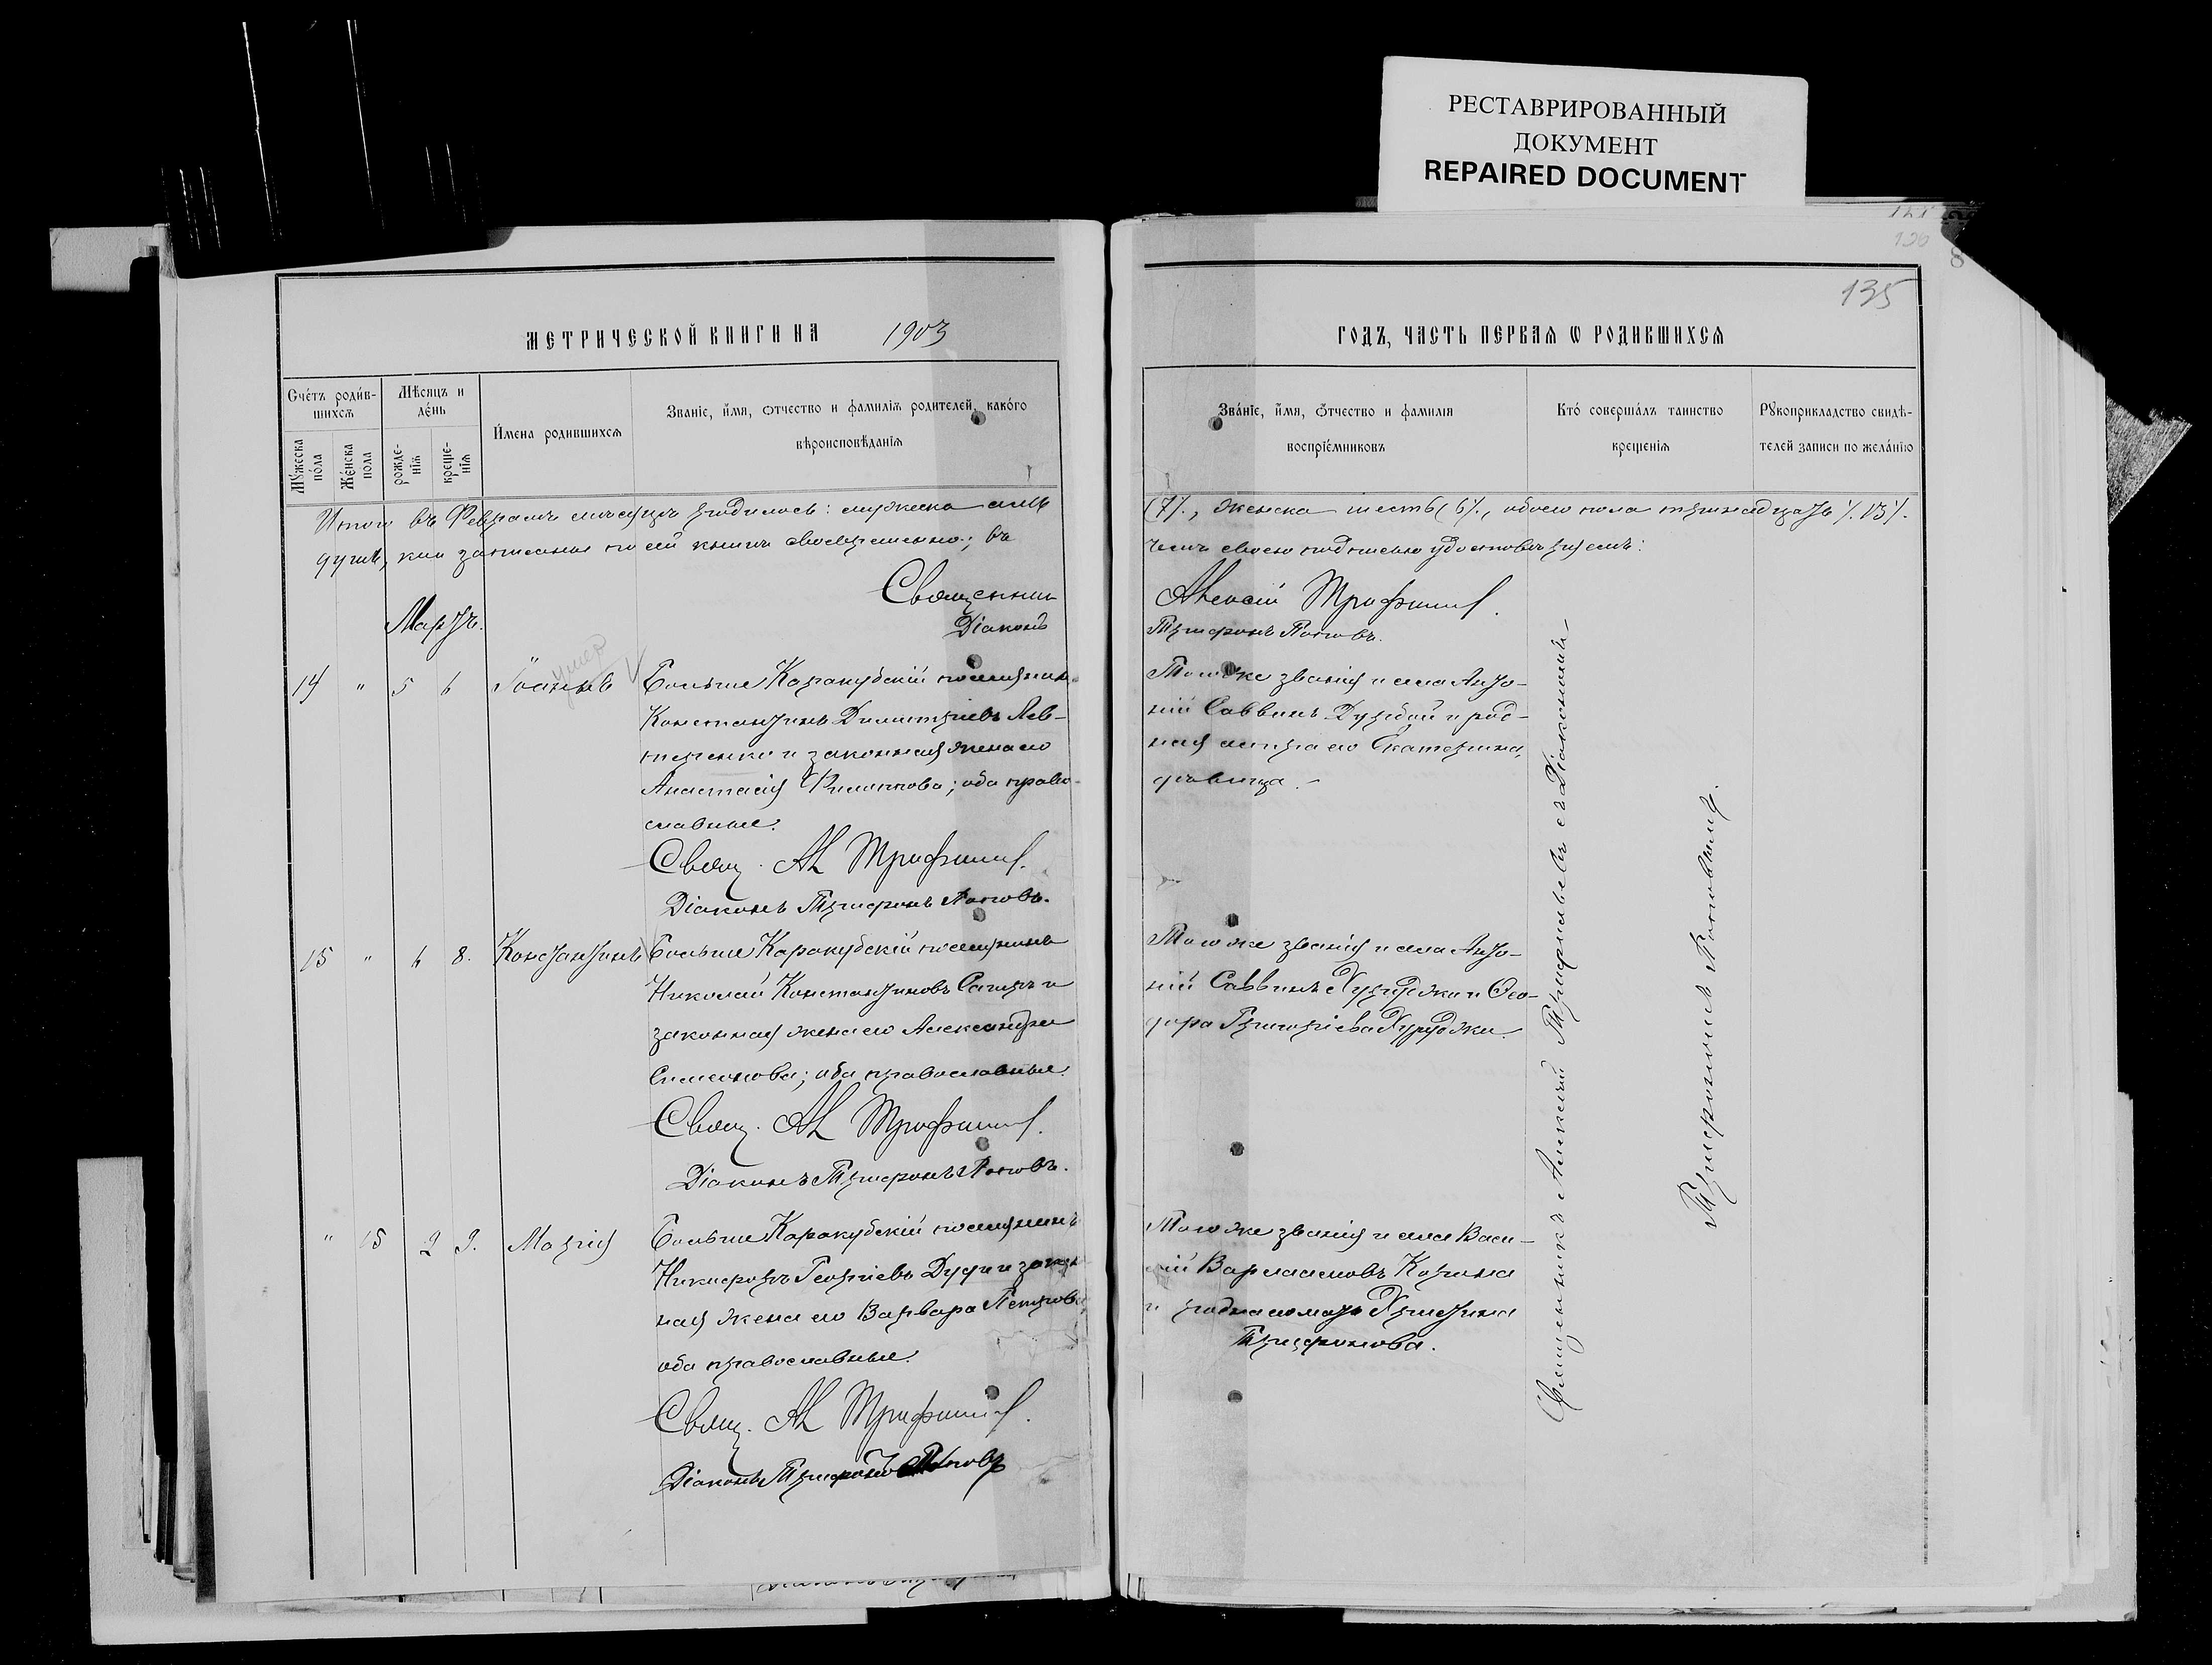 РЕСТАВРИРОВАННЫЙ
ДОКУМЕНТ
REPAIRED DOCUMENT
135
МЕТРИЧЕСКОЙ КНИГИ НА 1903
ГОДЪ, ЧАСТЬ ПЕРВАЯ Ѡ РОДИВШИХСЯ
Счётъ родив-
шихся
Мужеска
пола
Женска
пола
Мѣсяцъ и
день
рожде-
нія
креще-
нія
Имена родившихся
Званіе, имя, отчество и фамилія родителей, какого
вѣроисповѣданія
Званіе, имя, отчество и фамилія
воспріемниковъ
Кто совершалъ таинство
крещенія
Рукоприкладство свидѣ-
телей записи по желанію
Итого въ Февралѣ мѣсяцѣ родилось: мужеска семь
(7)., женска шесть (6)., обоего пола тринадцать (13).
душъ, кои записаны по сей книгѣ своевременно; въ
чемъ своею подписью удостовѣряемъ:
Священникъ Алексій Трифильевъ.
Діаконъ Трифонъ Поповъ.
Мартъ.
умер
14 " 5 6 Іоаннъ
Больше Каракубскій поселянинъ
Константинъ Димитріевъ Лев-
теренко и законная жена его
Анастасія Филиппова; оба право-
славные.
Свящ. Ал Трифильевъ.
Діаконъ Трифонъ Поповъ.
Того же званія и села Анто-
ній Саввинъ и род-
ная сестра его Екатерина,
дѣвица.
15 " 6 8. Константинъ
Больше Каракубскій поселянинъ
Николай Константиновъ Сагиръ и
законная жена его Александра
Симеонова; оба православные.
Свящ. Ал Трифильевъ.
Діаконъ Трифонъ Поповъ.
Того же званія и села Анто-
ній Саввинъ Хурджи и Ѳео-
дора Григоріева Хурджи.
" 15 2 9. Марія
Больше Каракубскій поселянинъ
Никифоръ Георгіевъ и закон-
ная жена его Варвара Петрова
оба православные.
Свящ. Ал Трифильевъ.
Діаконъ Трифонъ Поповъ
Того же званія и села Васи-
лій Варлаамовъ
и родна его мать Христина
Трифонова.
Священникъ Алексій Трифильевъ съ Діакономъ
Трифономъ Поповымъ.